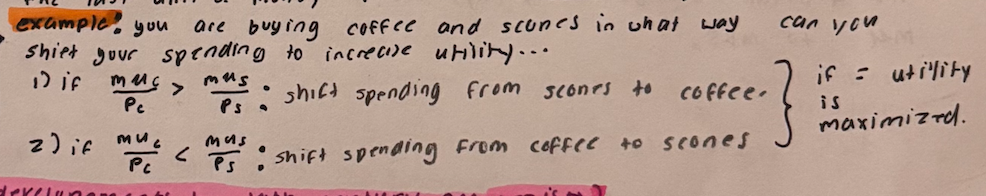 example: you are buying coffee and scones in what way can you
shift your spending to increase utility...
1) if muc/Pc > mus/Ps : shift spending from scones to coffee.
2) if muc/Pc < mus/Ps : shift spending from coffee to scones
if = utility
is
maximized.